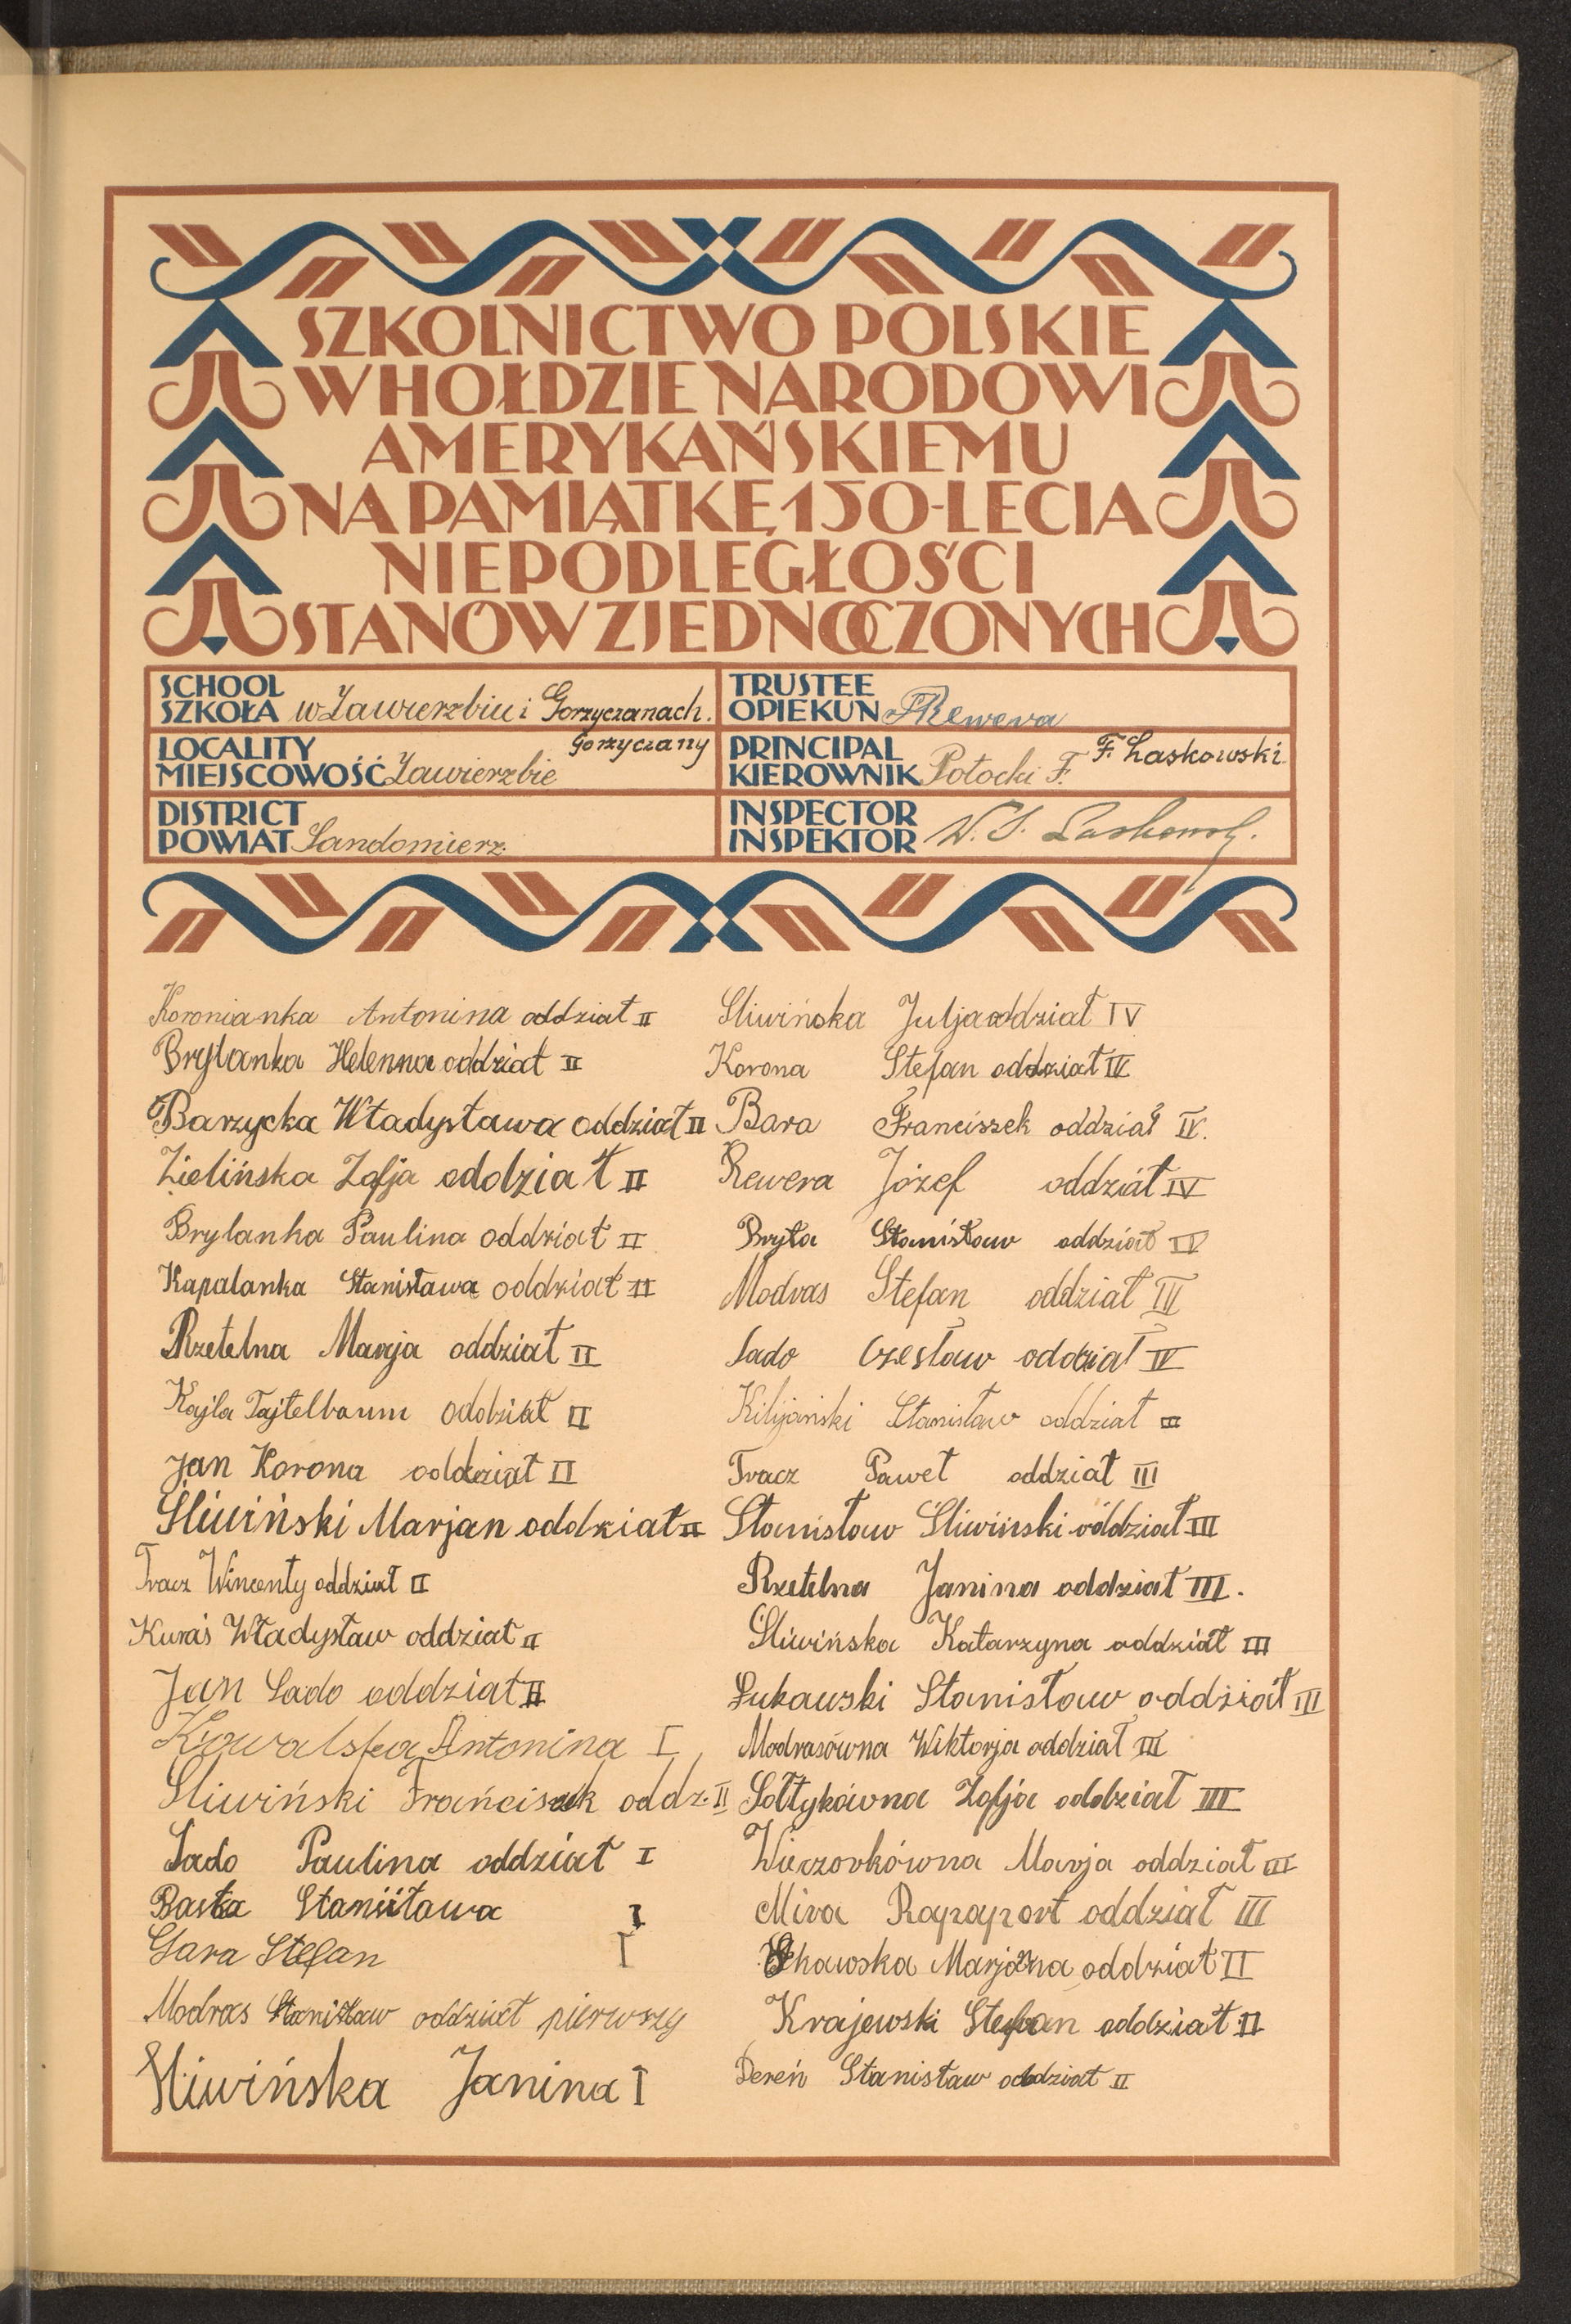 SZKOLNICTWO POLSKIE
W HOŁDZIE NARODOWI
AMERYKAŃSKIEMU
NA PAMIĄTKĘ 150-LECIA
NIEPODLEGŁOŚCI
STANÓW ZJEDNOCZONYCH
SCHOOL
SZKOŁA w Zawierzbiu i Gorzyczanach.
TRUSTEE
OPIEKUN FRewera
LOCALITY Gorzyczany
MIEJSCOWOŚĆ Zawierzbie
PRINCIPAL F. Laskowski
KIEROWNIK Potocki F.
DISTRICT
POWIAT Sandomierz.
INSPECTOR
INSPEKTOR W. S.
Koronianka Antonina oddział II
Brylanka Helenna oddział II
Barzycka Władysława oddział II
Zielińska Zofja oddział II
Brylanka Paulina oddział II
Kapalanka Stanisława oddział II
Rzetelna Marja oddział II
Kajla Tajtelbaum oddział II
Jan Korona oddział II
Śliwiński Marjan oddział II
Tracz Wincenty oddział II
Kuraś Władysław oddział II
Jan Sado oddział II
Kowalska Antonina I
Śliwiński Frańciszek oddz. II
Sado Paulina oddział I
Baska Stanisława I
Gara Stefan I
Modras Stanisław oddział pierwszy
Śliwińska Janina I
Sliwińska Julja oddział IV
Korona Stefan oddział IV
Bara Franciszek oddział IV.
Rewera Józef oddział IV
Bryła Stanisław oddział IV
Modras Stefan oddział IV
Sado Czesław oddział IV
Kilijański Stanisław oddział III
Tracz Paweł oddział III
Stanisław Śliwiński oddział III
Rzetelna Janina oddział III.
Śliwińska Katarzyna oddział III
Łukawski Stanisław oddział III
Modrasówna Wiktorja oddział III
Sołtykówna Zofja oddział III
Wieczorkówna Marja oddział III
Mira Rapaport oddział III
Marjanna oddział II
Krajewski Stefan oddział II
Dereń Stanisław oddział II